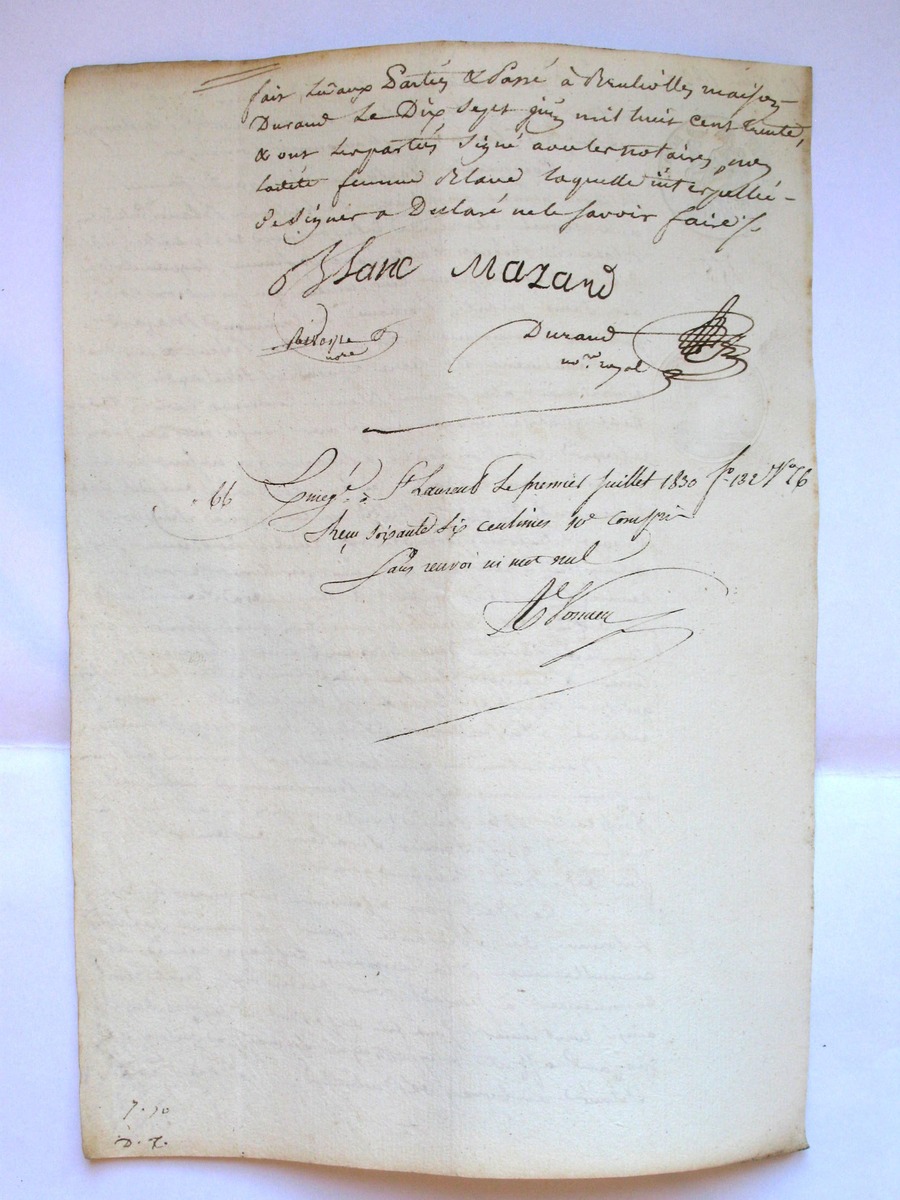 fait lu aux Parties & Passé à maison
Durand Le Dix Sept juin mil huit cent trente,
& ont les parties signé avec les notaires, non
ladite femme Blanc laquelle interpellée
de signer a Déclaré ne le savoir faire /.
Blanc Mazand
nore
Durand
nore. royal
66 Enregé. à St Laurent Le premier juillet 1830 fo. 132 No
Reçu soixante six centimes 10e compris
Sans renvoi ni mot nul
7.50
D. T.